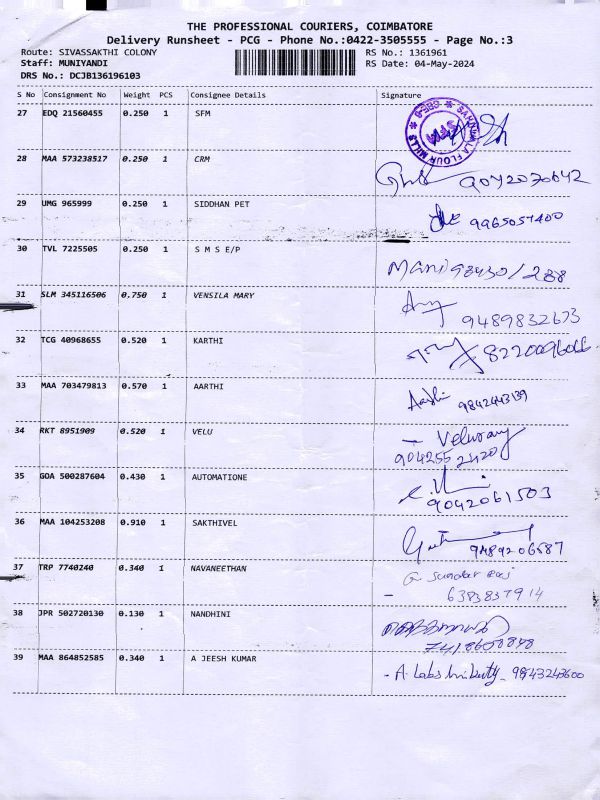 THE PROFESSIONAL COURIERS, COIMBATORE
Delivery Runsheet - PCG - Phone No.:0422-3505555 - Page No.:3
Route: SIVASSAKTHI COLONY RS No.: 1361961
Staff: MUNIYANDI RS Date: 04-May-2024
DRS No.: DCJB136196103
S No Consignment No Weight PCS Consignee Details Signature
27 EDQ 21560455 0.250 1 SFM
28 MAA 573238517 0.250 1 CRM
29 UMG 965999 0.250 1 SIDDHAN PET 9965057400
30 TVL 7225505 0.250 1 S M S E/P Mani
31 SLM 345116506 0.750 1 VENSILA MARY 9489832673
32 TCG 40968655 0.520 1 KARTHI
33 MAA 703479813 0.570 1 AARTHI
34 RKT 8951909 0.520 1 VELU
35 GOA 500287604 0.430 1 AUTOMATIONE 9042061503
36 MAA 104253208 0.910 1 SAKTHIVEL 9489206587
37 TRP 7740240 0.340 1 NAVANEETHAN
6383837914
38 JPR 502720130 0.130 1 NANDHINI
39 MAA 864852585 0.340 1 A JEESH KUMAR